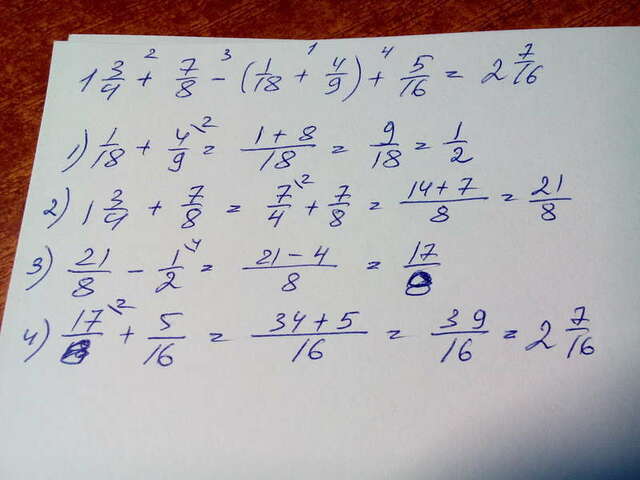 1 3/4 +² 7/8 −³ (1/18 +¹ 4/9) +⁴ 5/16 = 2 7/16
1) 1/18 + 4/9\² = (1 + 8)/18 = 9/18 = 1/2
2) 1 3/4 + 7/8 = 7/4\² + 7/8 = (14 + 7)/8 = 21/8
3) 21/8 − 1/2\⁴ = (21 − 4)/8 = 17/8
4) 17/8\² + 5/16 = (34 + 5)/16 = 39/16 = 2 7/16